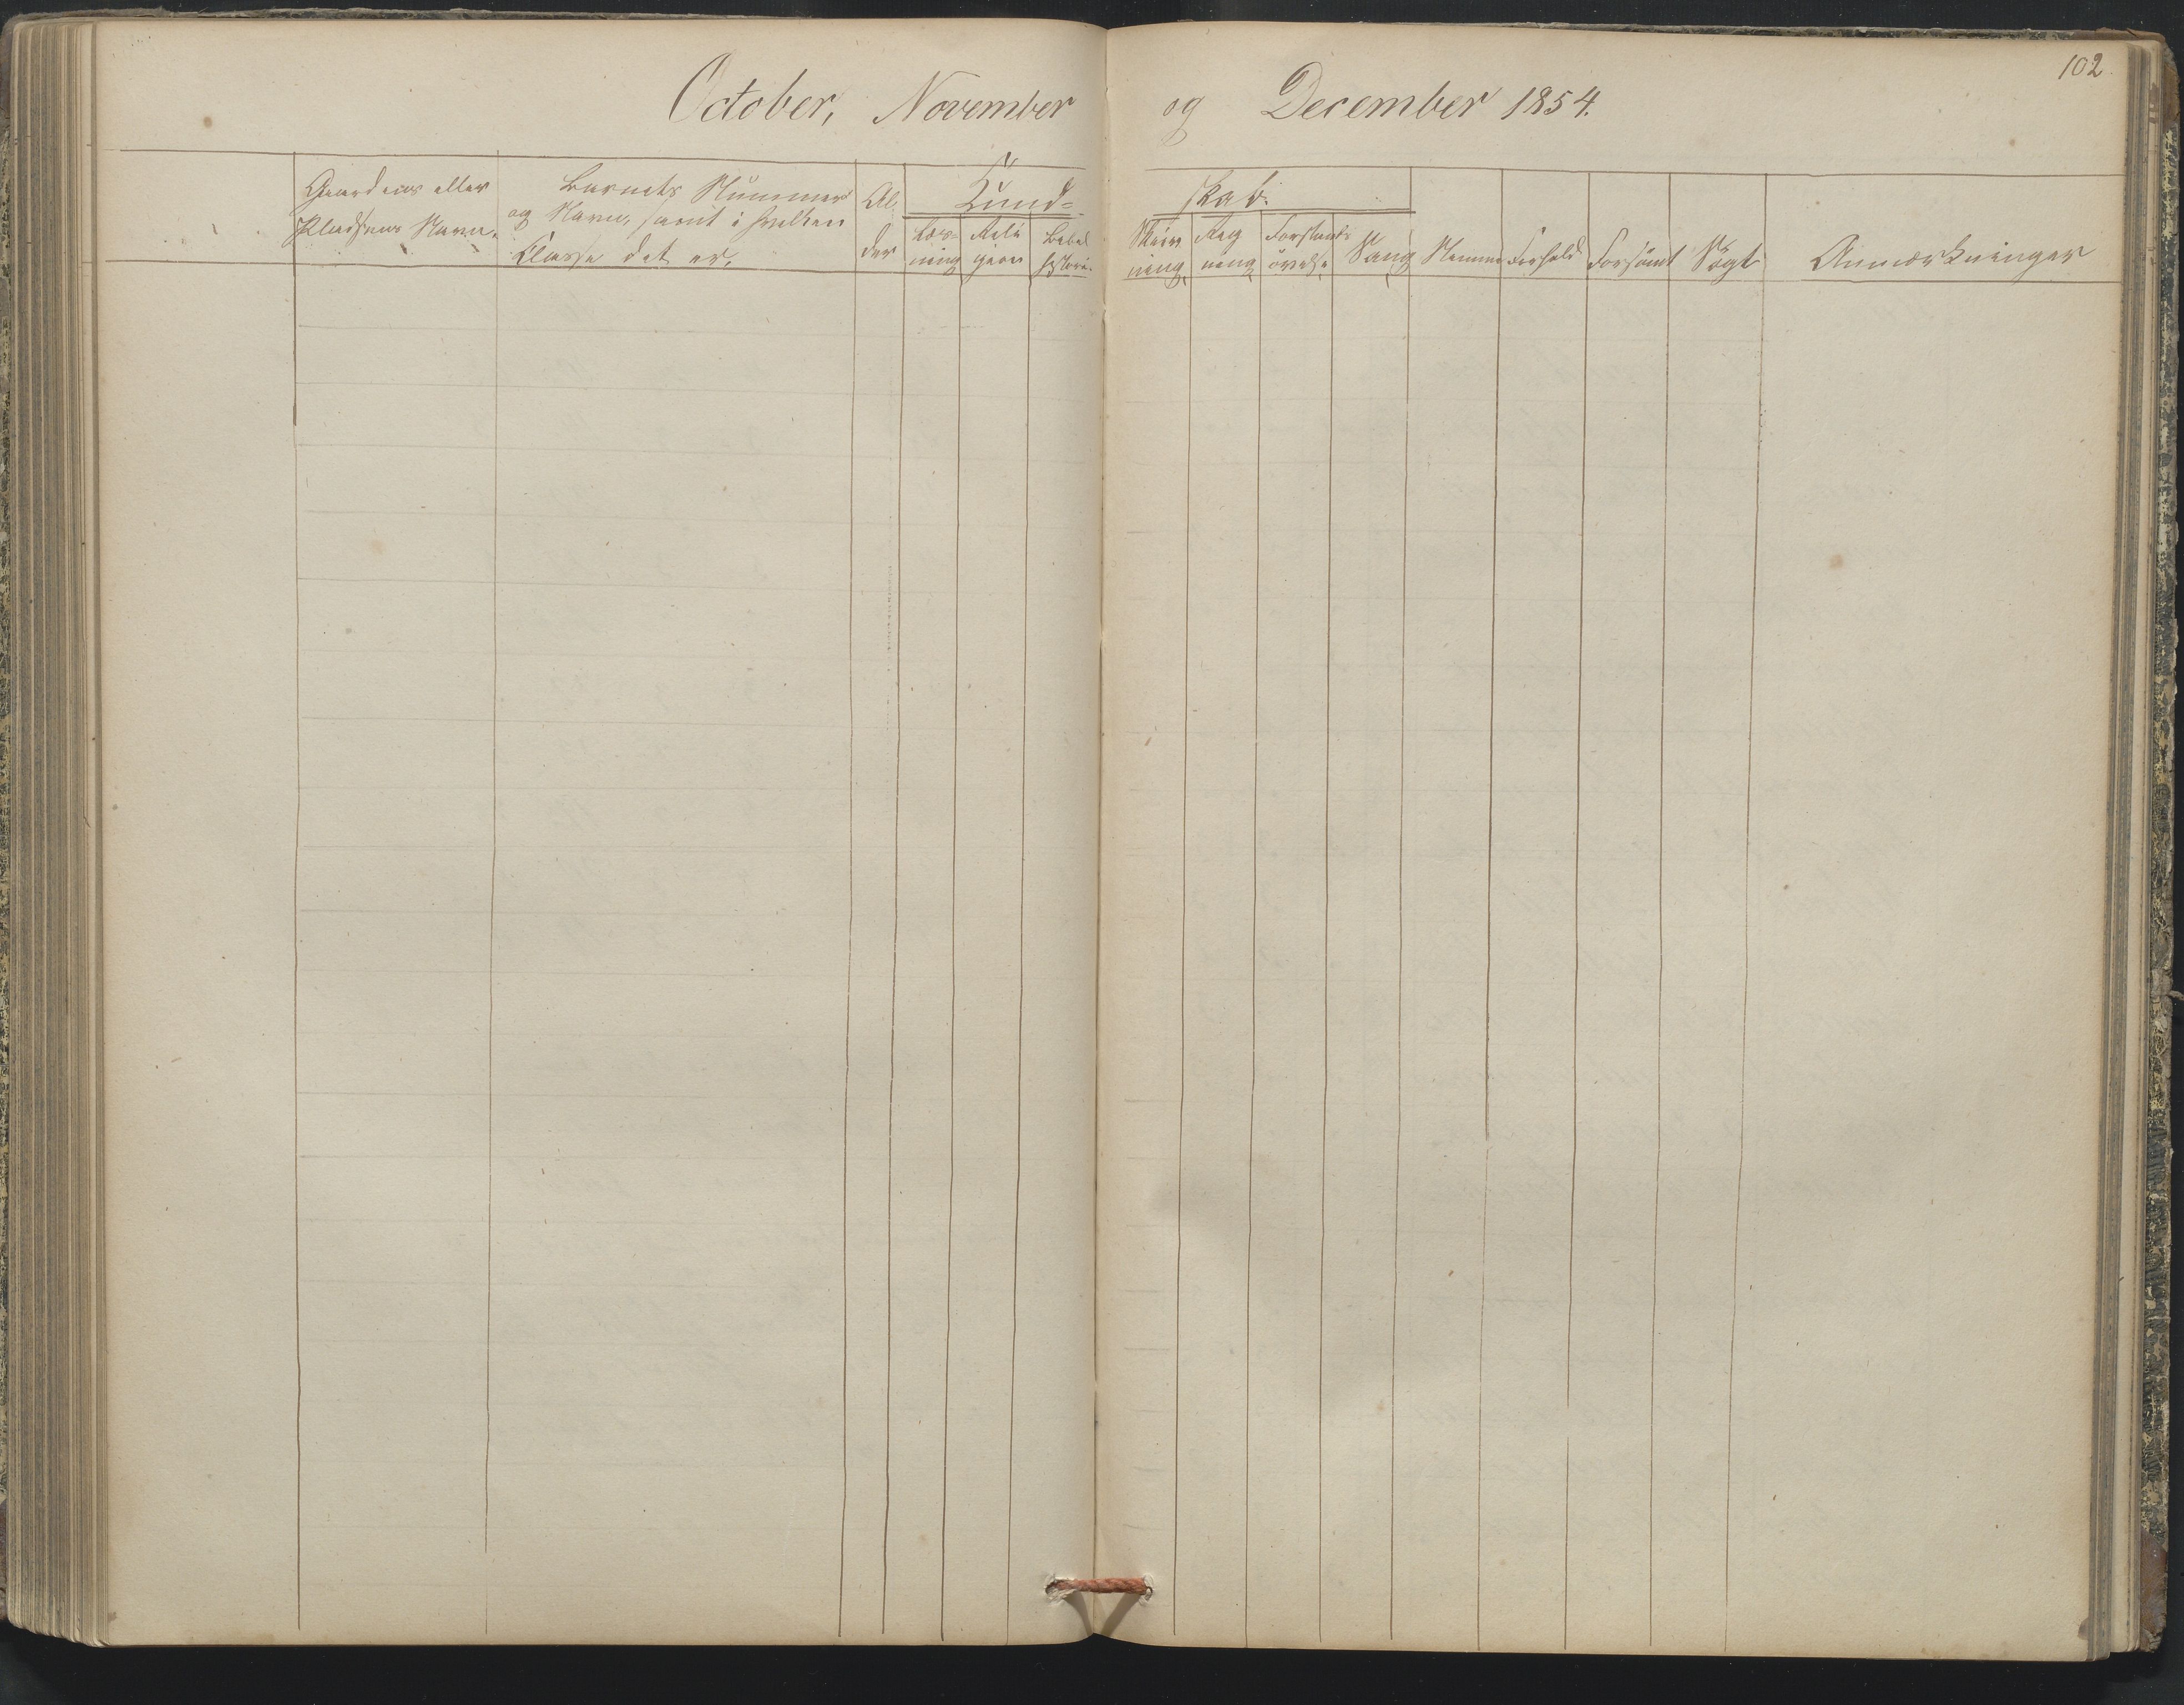 102
October, November og December 1854.
Gaardens eller
Pladsens Navn.
Barnets Nummer
og Navn, samt i hvilken
Classe det er.
Al
der
Kund-
skab.
Læs-
ning
Reli
gion
Bibel
historie.
Skriv
ning
Reg
ning
Forstands
øvelse
Sang
Nemme
Forhold
Forsømt
Søgt
Anmærkninger